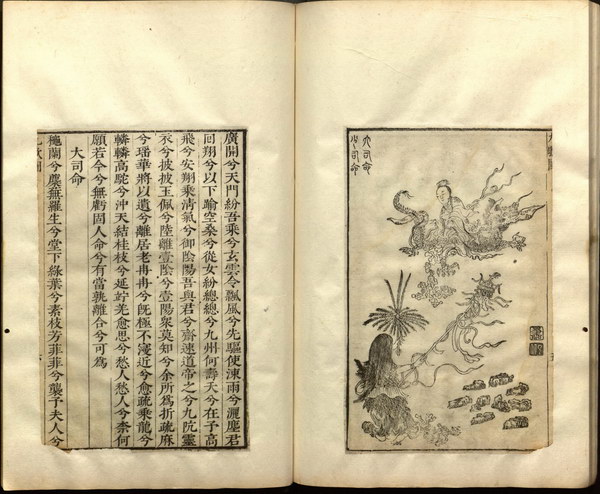 大司命
少司命
廣開兮天門紛吾乘兮玄雲令飄風兮先驅使涷雨兮灑塵君
回翔兮以下踰空桑兮從女紛總總兮九州何壽夭兮在予高
飛兮安翔乘清氣兮御陰陽吾與君兮齋速道帝之兮九阬靈
衣兮披披玉佩兮陸離壹陰兮壹陽衆莫知兮余所為折疏麻
兮瑤華將以遺兮離居老冉冉兮旣極不寖近兮愈疏乘龍兮
轔轔高駝兮沖天結桂枝兮延竚羌愈思兮愁人愁人兮柰何
願若今兮無虧固人命兮有當孰離合兮可為
大司命
穐蘭兮麋蕪羅生兮堂下綠葉兮素枝芳菲菲兮襲予夫人兮